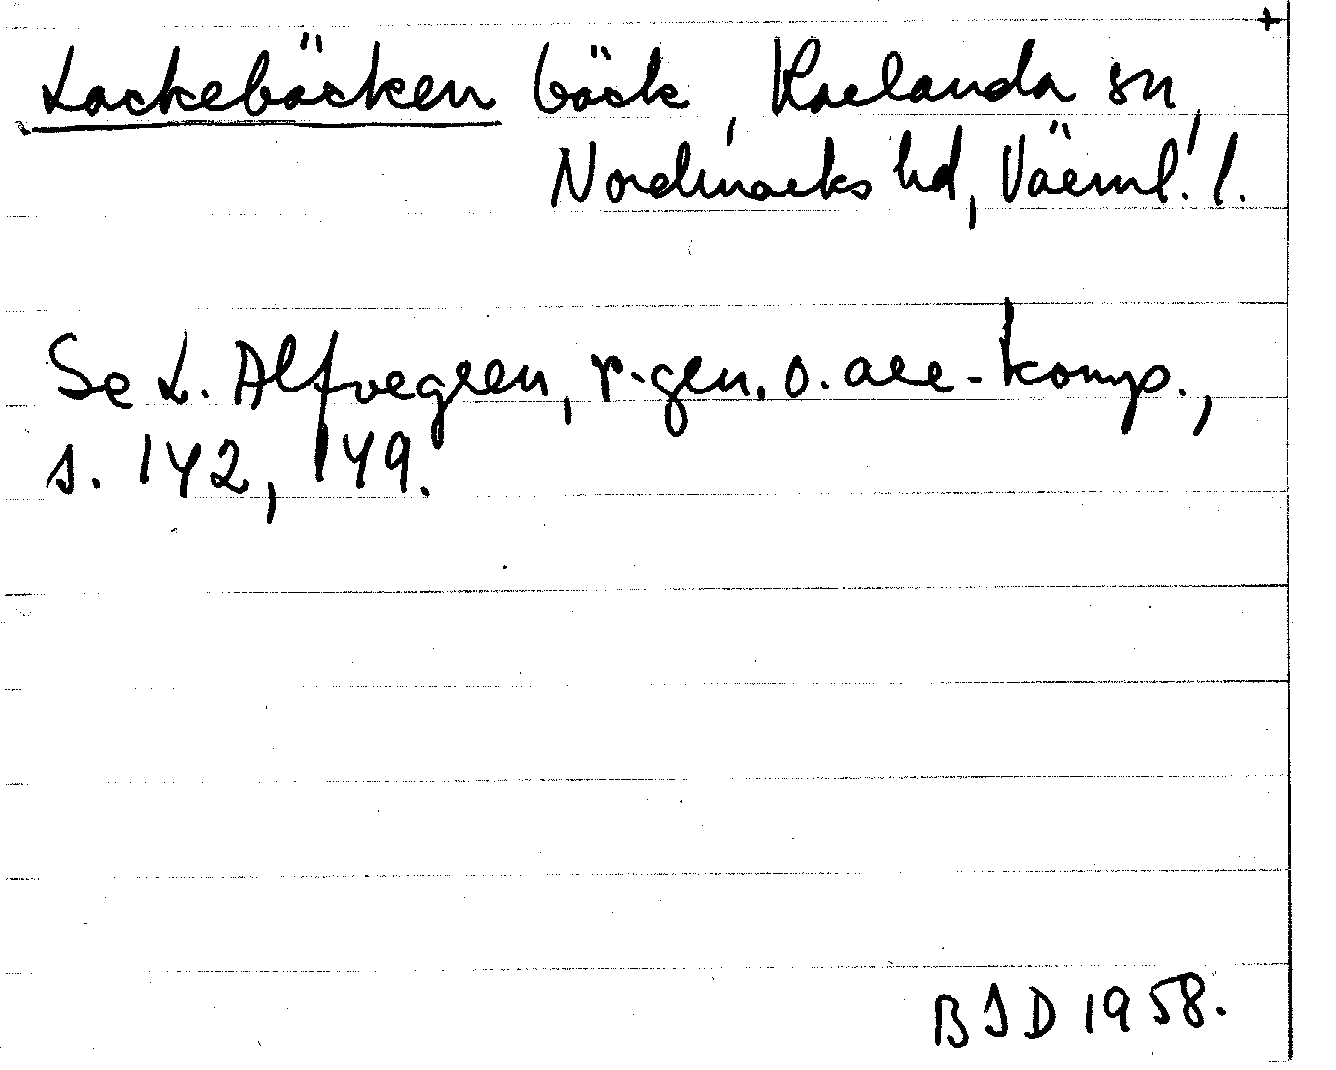 +
Lockebäcken bäck, Karlanda sn,
Nordmarks hd, Värml. l.
Se L. Alfvegren, r-gen. o. are-komp.,
s. 142, 149.
BID 1958.